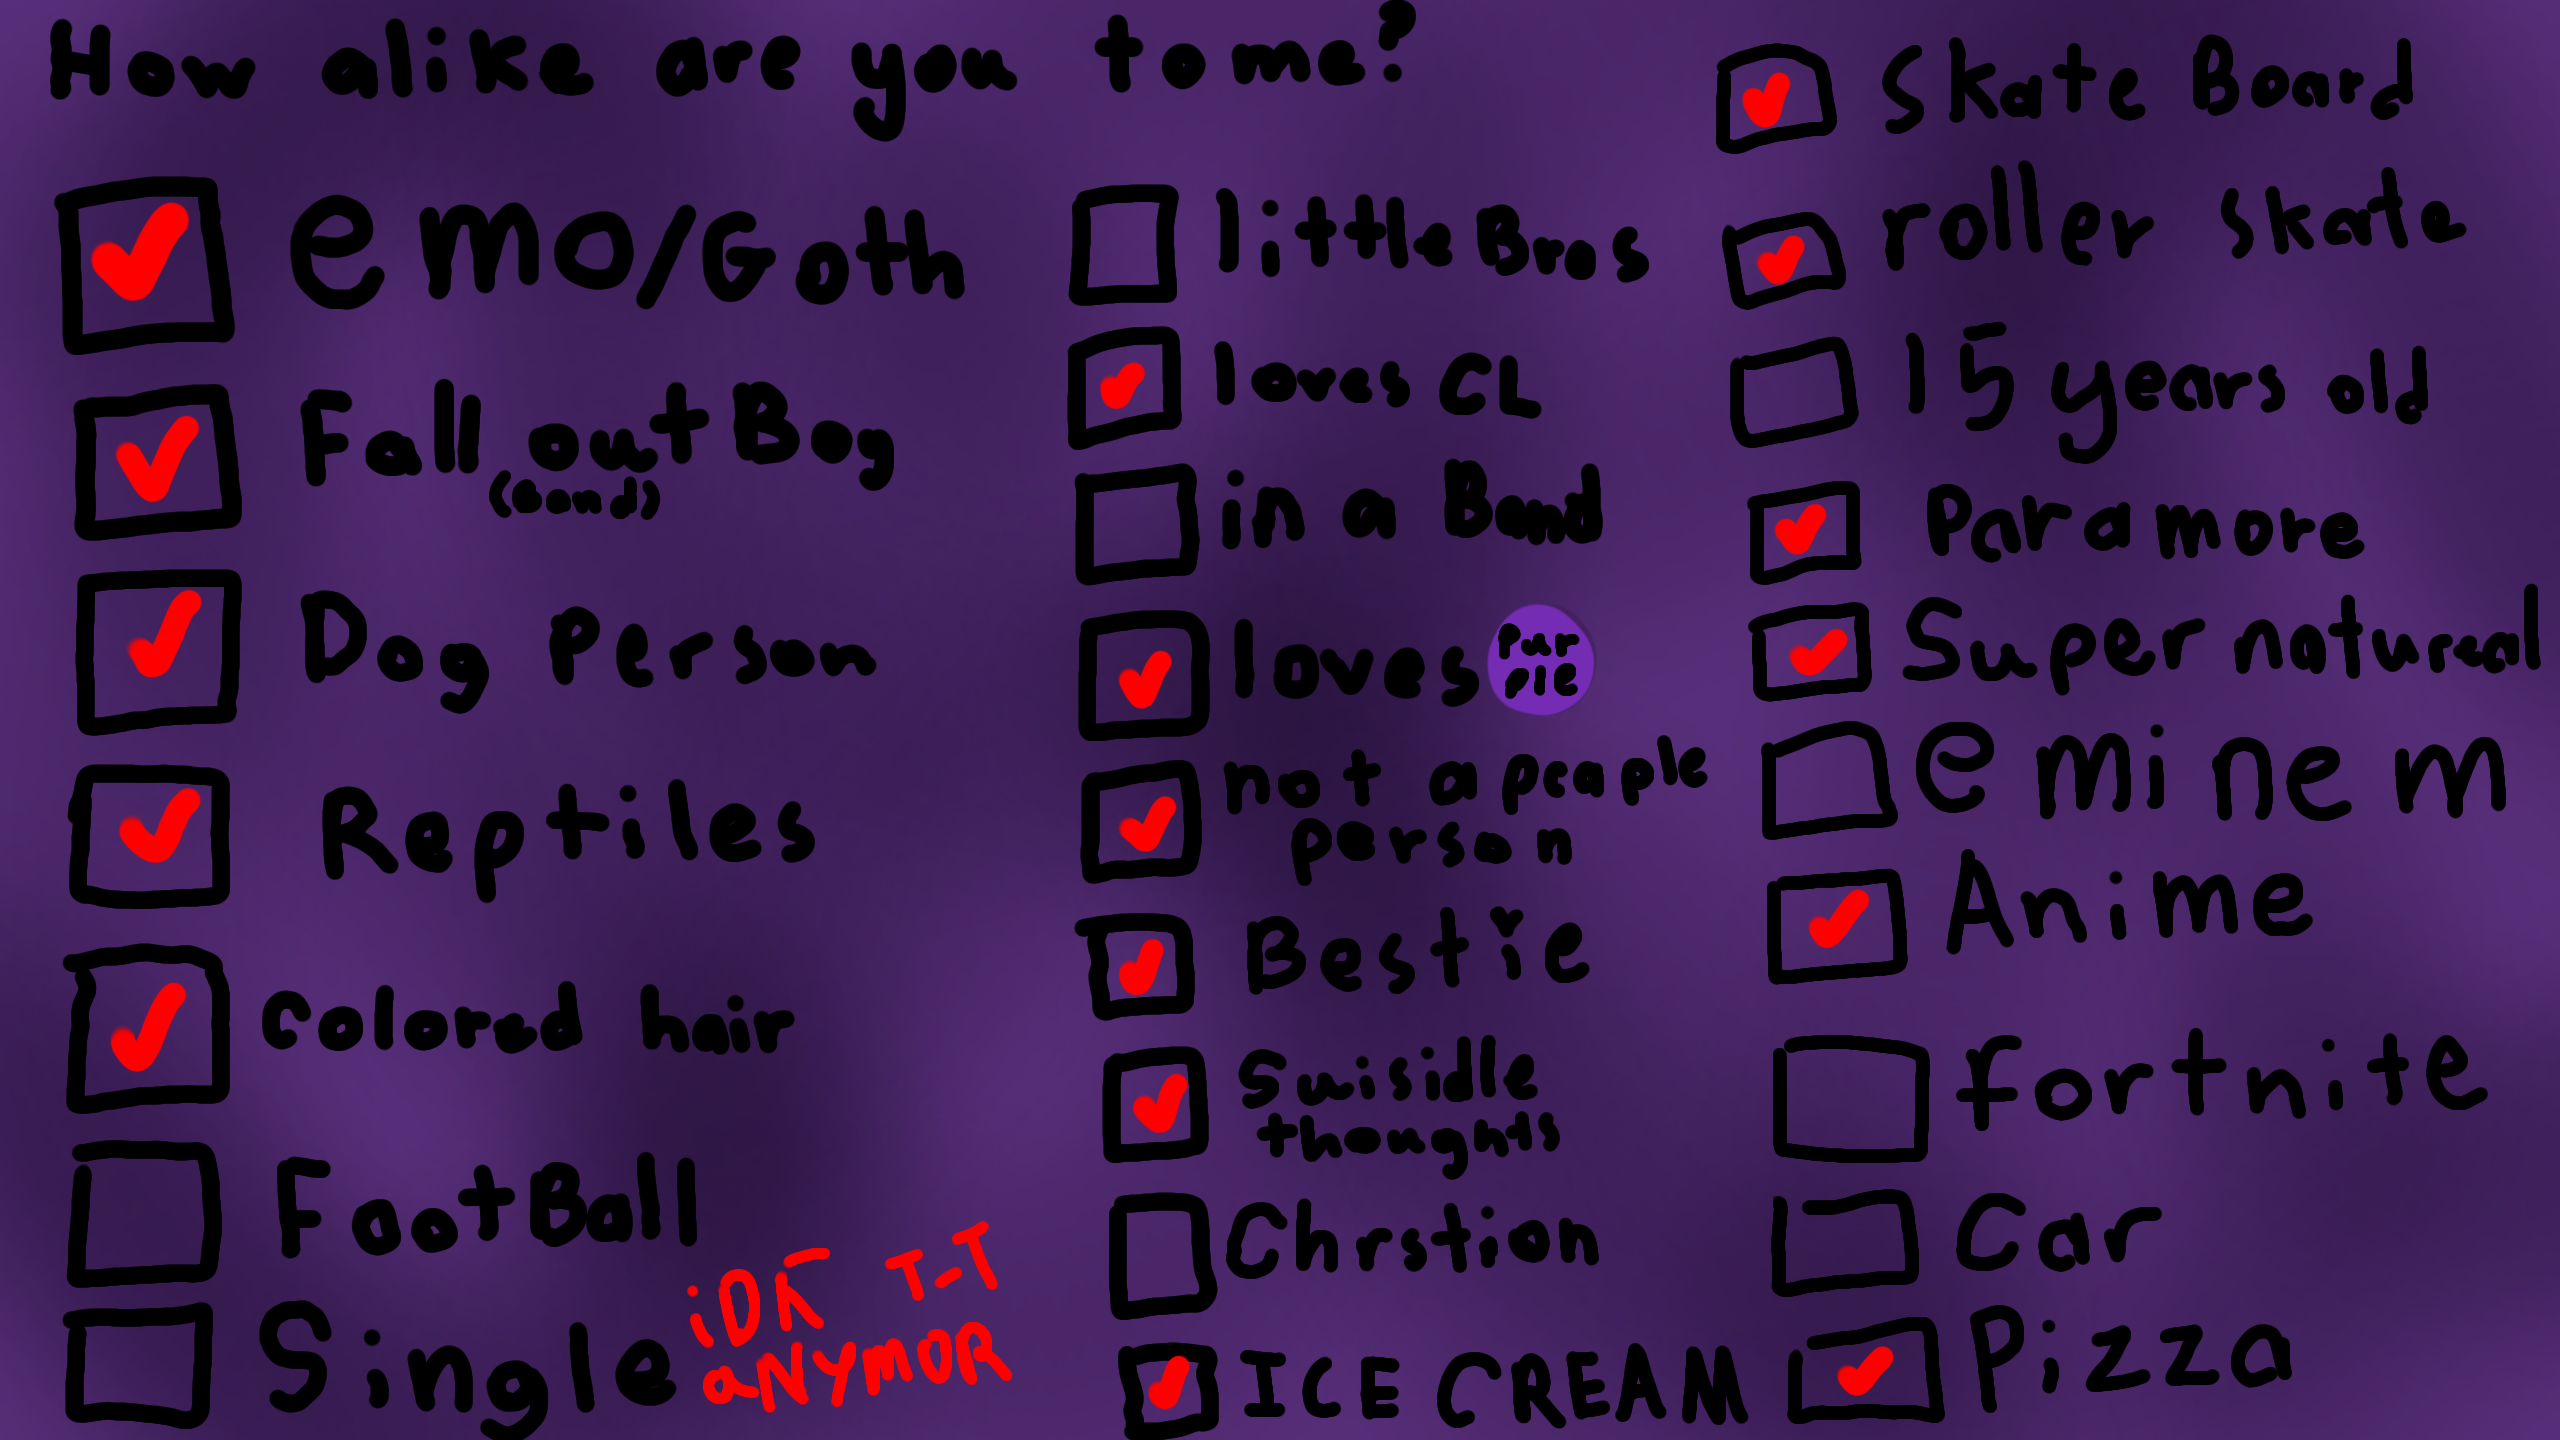 How alike are you to me?
emo/Goth
Fall out Boy
(band)
Dog Person
Reptiles
Colored hair
FootBall
Single
iDK T-T
aNYMOR
little Bros
loves CL
in a Band
loves
Pur
ple
not a people
person
Bestie
Suisidle
thoughts
Chrstian
ICE CREAM
Skate Board
roller skate
15 years old
Paramore
Supernatureal
eminem
Anime
fortnite
Car
Pizza